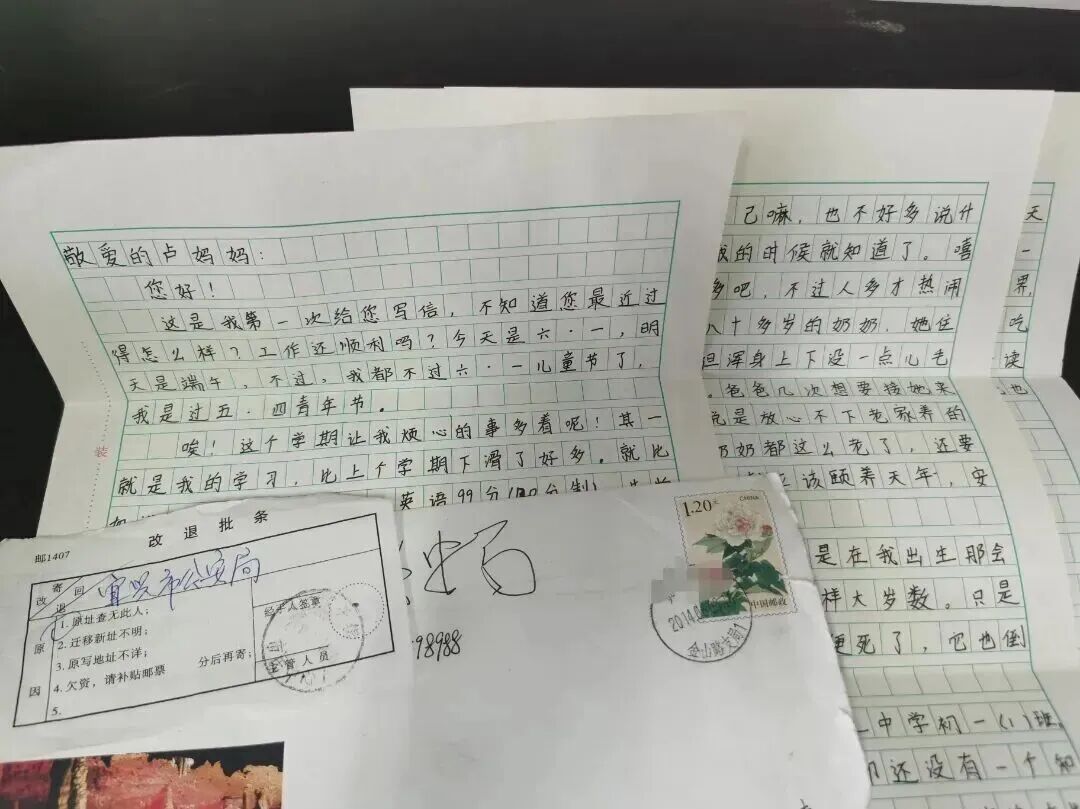 敬爱的卢妈妈：
您好！
这是我第一次给您写信，不知道您最近过
得怎么样？工作还顺利吗？今天是六·一，明
天是端午，不过，我都不过六·一儿童节了，
我是过五·四青年节。
唉！这个学期让我烦心的事多着呢！其一
就是我的学习，比上个学期下滑了好多。就比
英语99分(120分制)
装
己嘛，也不好多说什
的时候就知道了。嘻
多吧，不过人多才热闹
八十多岁的奶奶，她住
但浑身上下没一点儿毛
。爸爸几次想要接她来
说是放心不下老家养的
奶奶都这么老了，还要
该颐养天年，安
是在我出生那会
样大岁数。只是
死了，它也倒
中学初一(1)班
还没有一个知
天
一
果，
吃
读
也
改退批条
邮1407
改
退
寄回
宜兴市公安局
原
因
1. 原址查无此人；
2. 迁移新址不明；
3. 原写地址不详；
4. 欠资，请补贴邮票
分后再寄；
5.
经手人签章
主管人员
98988
1.20元
CHINA
中国邮政
2014.0